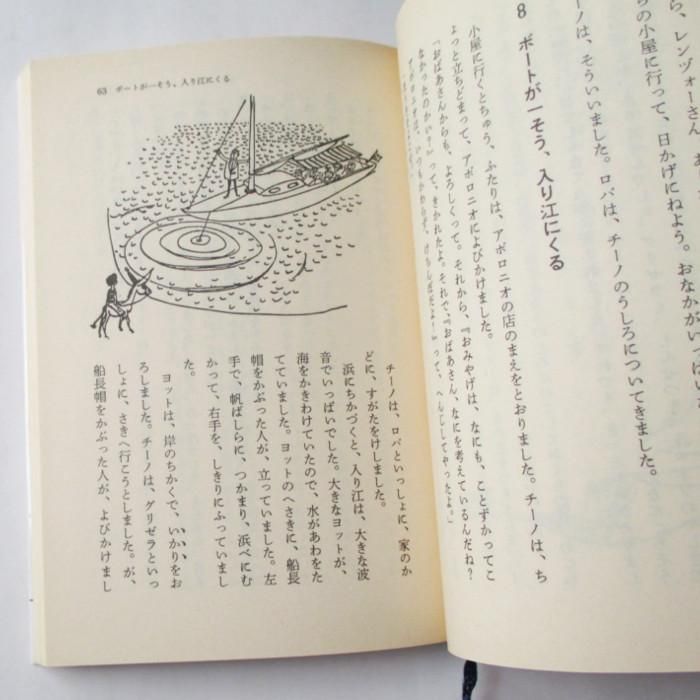 ら、レンヅォーさん
らの小屋に行って、日かげにねよう。おなかがいっぱいだ
ーノは、そういいました。ロバは、チーノのうしろについてきました。
8 ボートが一そう、入り江にくる
小屋に行くとちゅう、ふたりは、アポロニオの店のまえをとおりました。チーノは、ち
ょっと立ちどまって、アポロニオによびかけました。
「おばあさんからも、よろしくって。それから、『おみやげは、なにも、ことずかってこ
なかったのかい?』って、きかれたよ。それで、『おばあさん、なにを考えているんだね?
アポロニオは、いつもかわらず、けちんぼだよ!』って、へんじしてやったよ。」
63 ボートが一そう、入り江にくる
チーノは、ロバといっしょに、家のか
どに、すがたをけしました。
浜にちかづくと、入り江は、大きな波
音でいっぱいでした。大きなヨットが、
海をかきわけていたので、水があわをた
てていました。ヨットのへさきに、船長
帽をかぶった人が、立っていました。左
手で、帆ばしらに、つかまり、浜べにむ
かって、右手を、しきりにふっていまし
た。
ヨットは、岸のちかくで、いかりをお
ろしました。チーノは、グリゼラといっ
しょに、さきへ行こうとしました。が、
船長帽をかぶった人が、よびかけまし